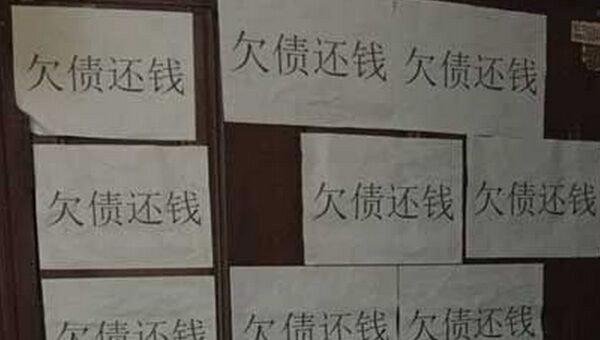 欠债还钱
欠债还钱
欠债还钱
欠债还钱
欠债还钱
欠债还钱
欠债还钱
欠债还钱
欠债还钱